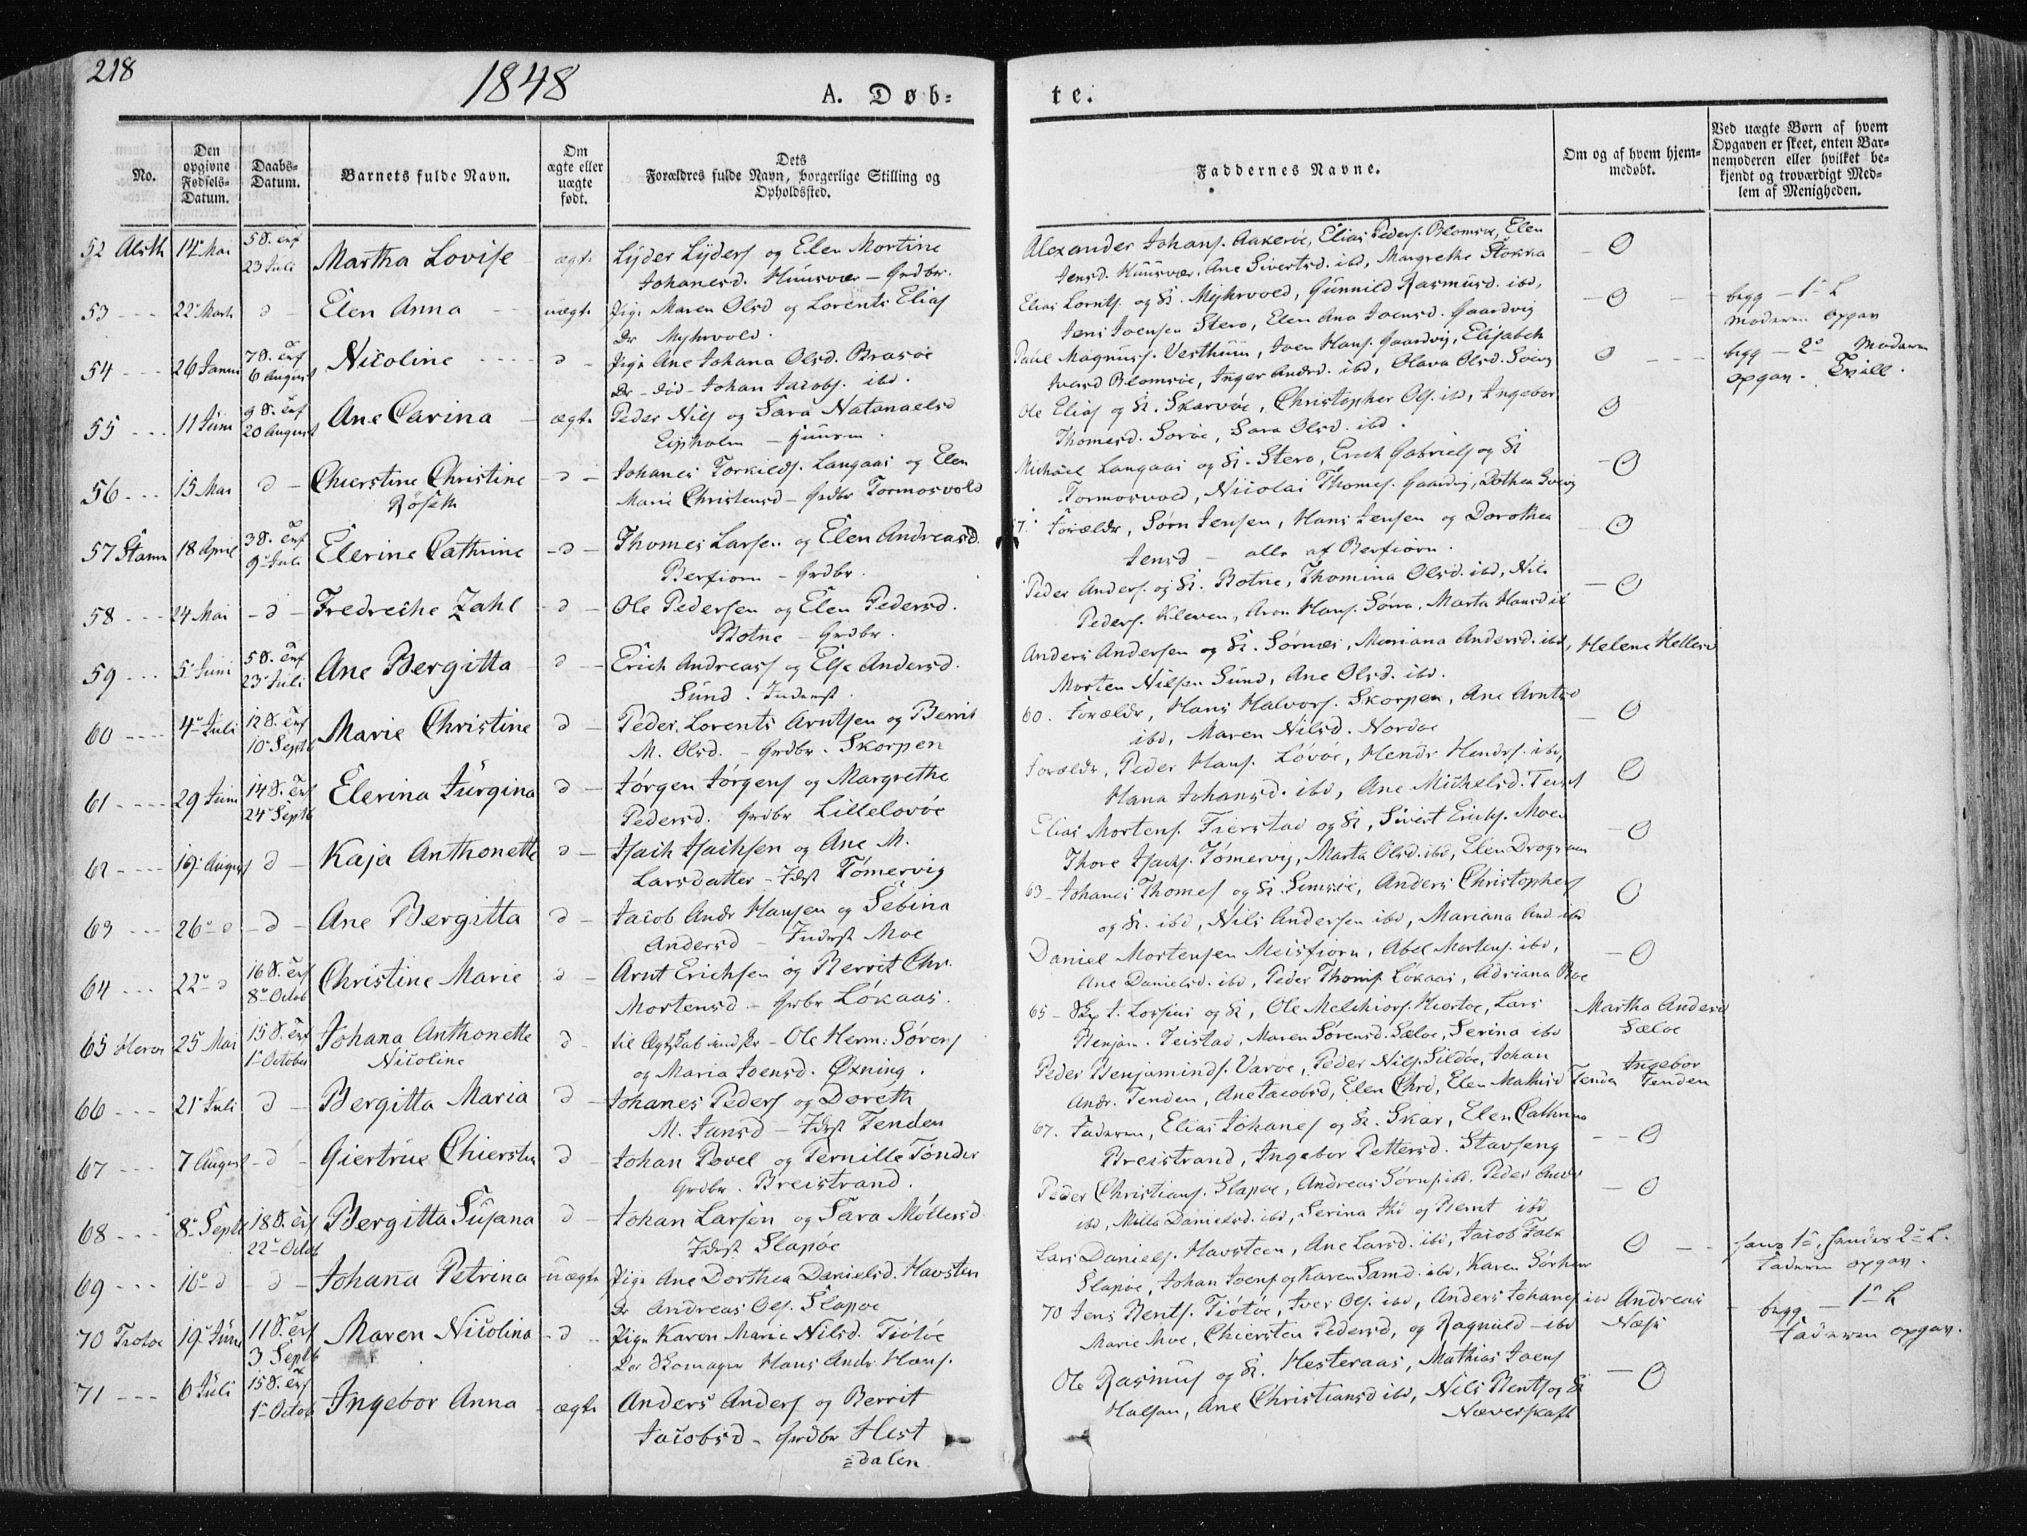 218
1848
A. Døb-
te.
No.
Den opgivne Fødsels-Datum.
Daabs-Datum.
Barnets fulde Navn.
Om ægte eller uægte født.
Dets Forældres fulde Navn, borgerlige Stilling og Opholdssted.
Faddernes Navne.
Om og af hvem hjem-
medøbt.
Ved uægte Børn af hvem
Opgaven er skeet, enten Bar-
nemoderen eller hvilket be-
kjendt og troværdigt Med-
lem af Menigheden.
52 Alsth 14 Mai 5 S. Trf 23 Juli Martha Lovise ægte Lyder Lyders og Elen Mortine
Johanesd. Huusvær - Grdbr.
Alexander Johans. Aakerøe, Elias Peders. Blomsøe, Elen
Jensd. Huusvær. Ane Sivertsd. ibd, Margrethe Stokka
O
53 22 Marts d Elen Anna uægte Pige Maren Olsd og Lorents Elias
Dr Myhrvold.
Elias Lornts. og K. Myhrvold, Gunnild Rasmusd. ibd,
Jens Joensen Stero, Elen Ana Joensd. Gaardvig
O
begg - 1ste L
Moderen opgav
54 26 Januar 7 S. Trf 6 August Nicoline d Pige Ane Johana Olsd. Brasøe
Dr - død - Johan Jacobs. ibd.
Paul Magnus. Vesthuun, Joen Hans. Gaardvig, Elisabeth
Iversd Blomsøe, Inger Andrd. ibd, Olava Olsd. Sveig
O
begg - 2d Moderen
opgav.
55 11 Juni 9 S. Trf 20 August Ane Carina ægte Peder Nils og Sara Natanaelsd
Eipholm - Huusm.
Ole Elias og K. Skarvøe, Christopher Ols. ibd, Ingebor
Thomesd. Sorøe, Sara Olsd. ibd.
O
56 15 Mai d Chierstine Christine
Røseth
d Johanes Torkilds. Langaas og Elen
Marie Christensd - Grdbr Tormosvold
Michael Langaas og K. Stero, Erich Gabriels og K
Tormosvold, Nicolai Thomes. Gaardvig, Dothea Sveig
O
57 Stamn 18 April 3 S. Trf 9 Juli Elerine Cathrine d Thomes Larsen og Elen Andreasd.
Berfiorn - Grdbr.
57. Forældr, Sørn Jensen, Hans Jensen og Dorothea
Jensd - alle af Berfiorn.
O
58 24 Mai d Fredreche Zahl d Ole Pedersen og Elen Pedersd.
Botne - Grdbr.
Peder Anders. og K. Botne, Thomina Olsd. ibd, Nils
Peders. Kleven, Aron Hans. Sørra, Marta Hansd ib
O
59 5 Juni 5 S. Trf 23 Juli Ane Bergitta d Erich Andreass og Else Andersd.
Sund. Inderst.
Anders Andersen og K. Sørnæs, Mariana Andersd. ibd,
Morten Nilsen Sund, Ane Olsd. ibd.
Helene Hellesv
60 4 Juli 12 S. Trf 10 Septb Marie Christine d Peder Lorents Arntsen og Berrit
M. Olsd. - Grdbr. Skorpen
60. Forældr, Hans Halvors. Skorpen, Ane Arntsd
ibd, Maren Nilsd. Nordøe
O
61 29 Juni 14 S. Trf 24 Septb Elerina Jürgina d Jørgen Jørgens og Margrethe
Pedersd. Grdbr Lilleløvøe
Forældr, Peder Hans. Løvøe, Hendr Hendrs. ibd,
Hana Johansd. ibd, Ane Michelsd.
O
62 19 August d Kaja Anthonette d Isach Isachsen og Ane M.
Larsdatter - Idst Tømervig
Elias Mortens. Tierstad og K, Sivert Erichs. Moen
Thore Isachs. Tømervig, Marta Olsd. ibd, Elen
O
63 26 d d Ane Bergitta d Jacob Andr Hansen og Sebina
Andersd - Inderst Moe
63 - Johanes Thomes og K. Semsøe, Anders Christophers
og K. ibd, Nils Andersen ibd, Mariana And. ibd
O
64 22 d 16 S. Trf 8 Octob Christine Marie d Arnt Erichsen og Berrit Chr.
Mortensd - Grdbr Løkaas.
Daniel Mortensen Meisfiorn, Abel Mortens. ibd,
Ane Danielsd. ibd, Peder Thoms. Løkaas, Adriana Roe
O
65 Herøe 25 Mai 15 S. Trf 1 October Johana Anthonette
Nicoline
d til Ægteskab indskr - Ole Herm: Sørens
og Maria Joensd. Øxning.
65 - Skp t. Lossius og K, Ole Melchiors. Hiortøe, Lars
Benjam. Teistad, Maren Sørensd. Sæløe, Serina ibd
Martha Andersd
Sæløe
66 21 Juli d Bergitta Maria d Johanes Peders og Doreth
M. Jansd - Idst Tenden
Peder Benjaminds. Varøe, Peder Nils. Sildøe, Johan
Andr. Tenden, Ane Jacobsd, Elen Chrd, Elen Mathisd Tenda
Ingebor
Tenden
67 7 August d Giertrue Chiersten d Johan Povel og Pernille Tønder
Grdbr. Breistrand.
67. Faderen, Elias Johanes og K. Skar, Elen Cathrina
Breistrand, Ingebor Pettersd. Stavseng
O
68 8 Septb 18 S. Trf 22 Octob Bergitta Susana d Johan Larsen og Sara Møllersd
Idst Slapøe
Peder Christians. Slapøe, Andreas Sørns. ibd. Peder Anders
ibd, Milla Danielsd. ibd, Serina ibd og Bernt ibd
O
69 16 d d Johana Petrina uægte Pige Ane Dorthea Danielsd. Havsten
Dr Andreas Ols. Slapøe
Lars Daniels. Havsteen, Ane Larsd. ibd, Jacob Falk
Slapøe, Johan Joens og Karen Samd. ibd, Karen
O
hans 1ste, hendes 2d L.
Faderen opgav.
70 Tiøtøe 19 Juni 11 S. Trf 3 Septb Maren Nicolina d Pige Karen Marie Nilsd. Tiøtøe
Dr Skomager Hans Andr. Hans.
70 Jens Bents. Tiøtøe, Iver Ols. ibd, Anders Johanes ibd
Marie Moe, Chiersten Pedersd, og Ragnild - ibd
Andreas
Næss
begg - 1ste L
Faderen opgav.
71 6 Juli 15 S. Trf 1 Octob Ingebor Anna ægte Anders Anders og Berrit
Jacobsd - Grdbr Hest
=dalen
Ole Rasmus og K. Hesteraas, Mathias Joens
Halsan, Ane Christiansd ibd, Nils Bents og K
Næverskaft
O